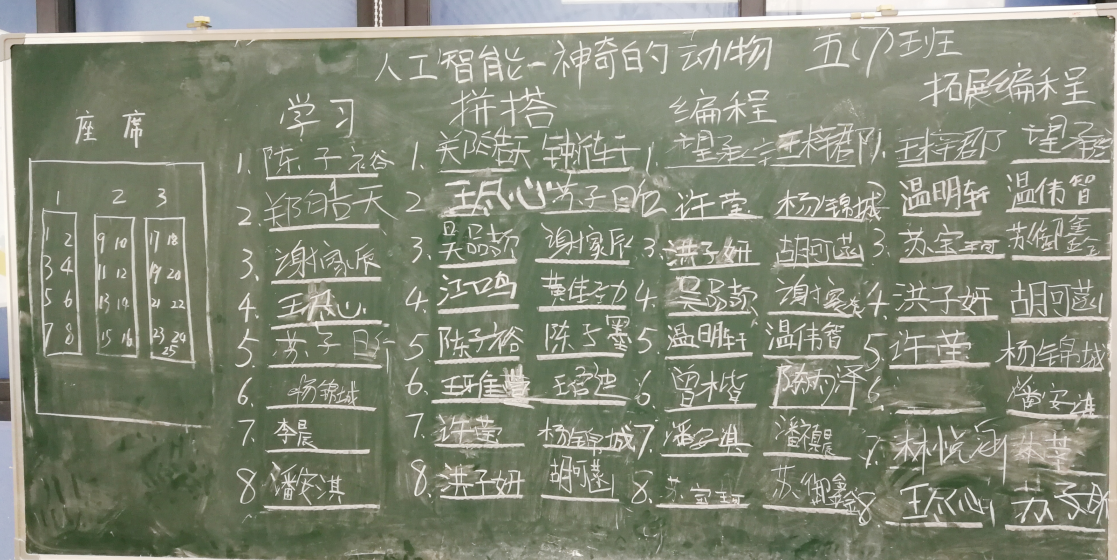 人工智能-神奇的动物 五(7)班
座席
1 2 3
1 2 9 10 17 18
3 4 11 12 19 20
5 6 13 14 21 22
7 8 15 16 23 24
25
学习
1. 陈子裕
2. 郑皓天
3. 谢家辰
4. 王尽心
5. 苏子
6. 杨锦城
7. 李晨
8 潘安淇
拼搭
1. 关皓天
2 王尽心 苏子
3. 吴品 谢家辰
4. 江鸣
5 陈子裕 陈子墨
6. 王雅萱
7. 许莹 杨锦城
8. 洪子妍 胡可菡
编程
1. 王梓郡
2 许莹 杨锦城
3. 洪子妍 胡可菡
4 吴品 谢家辰
5 温明轩 温伟智
6 曾木皆 陈雨泽
7 潘安淇
8. 苏宝珂 苏御鑫
拓展编程
1. 王梓郡
2 温明轩 温伟智
3. 苏宝珂 苏御鑫
4 洪子妍 胡可菡
5 许莹 杨锦城
6 潘安淇
7. 林悦涵
8. 王尽心